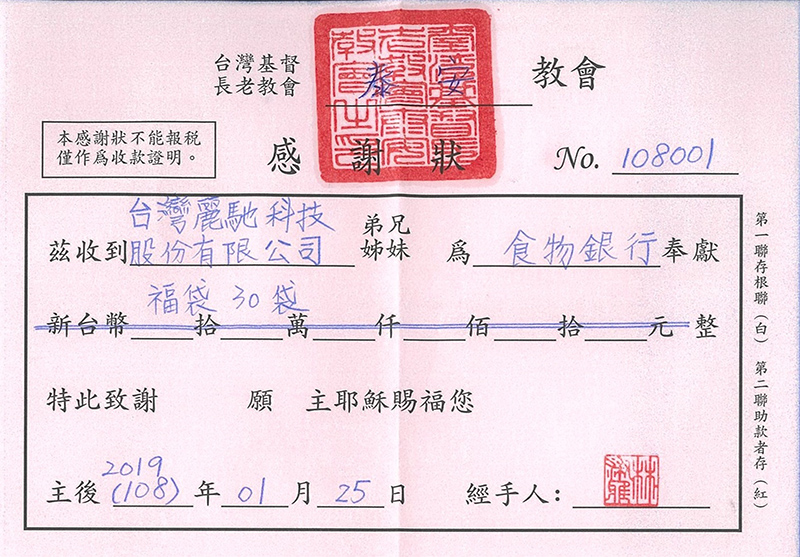 台灣基督
長老教會 泰安 教會
感謝狀
本感謝狀不能報稅
僅作為收款證明。
No. 108001
茲收到 台灣麗馳科技
股份有限公司 弟兄
姊妹 為 食物銀行 奉獻
福袋 30 袋
新台幣 拾 萬 仟 佰 拾 元 整
特此致謝 願 主耶穌賜福您
2019
主後 (108) 年 01 月 25 日 經手人: 林
第一聯存根聯(白) 第二聯助款者存(紅)